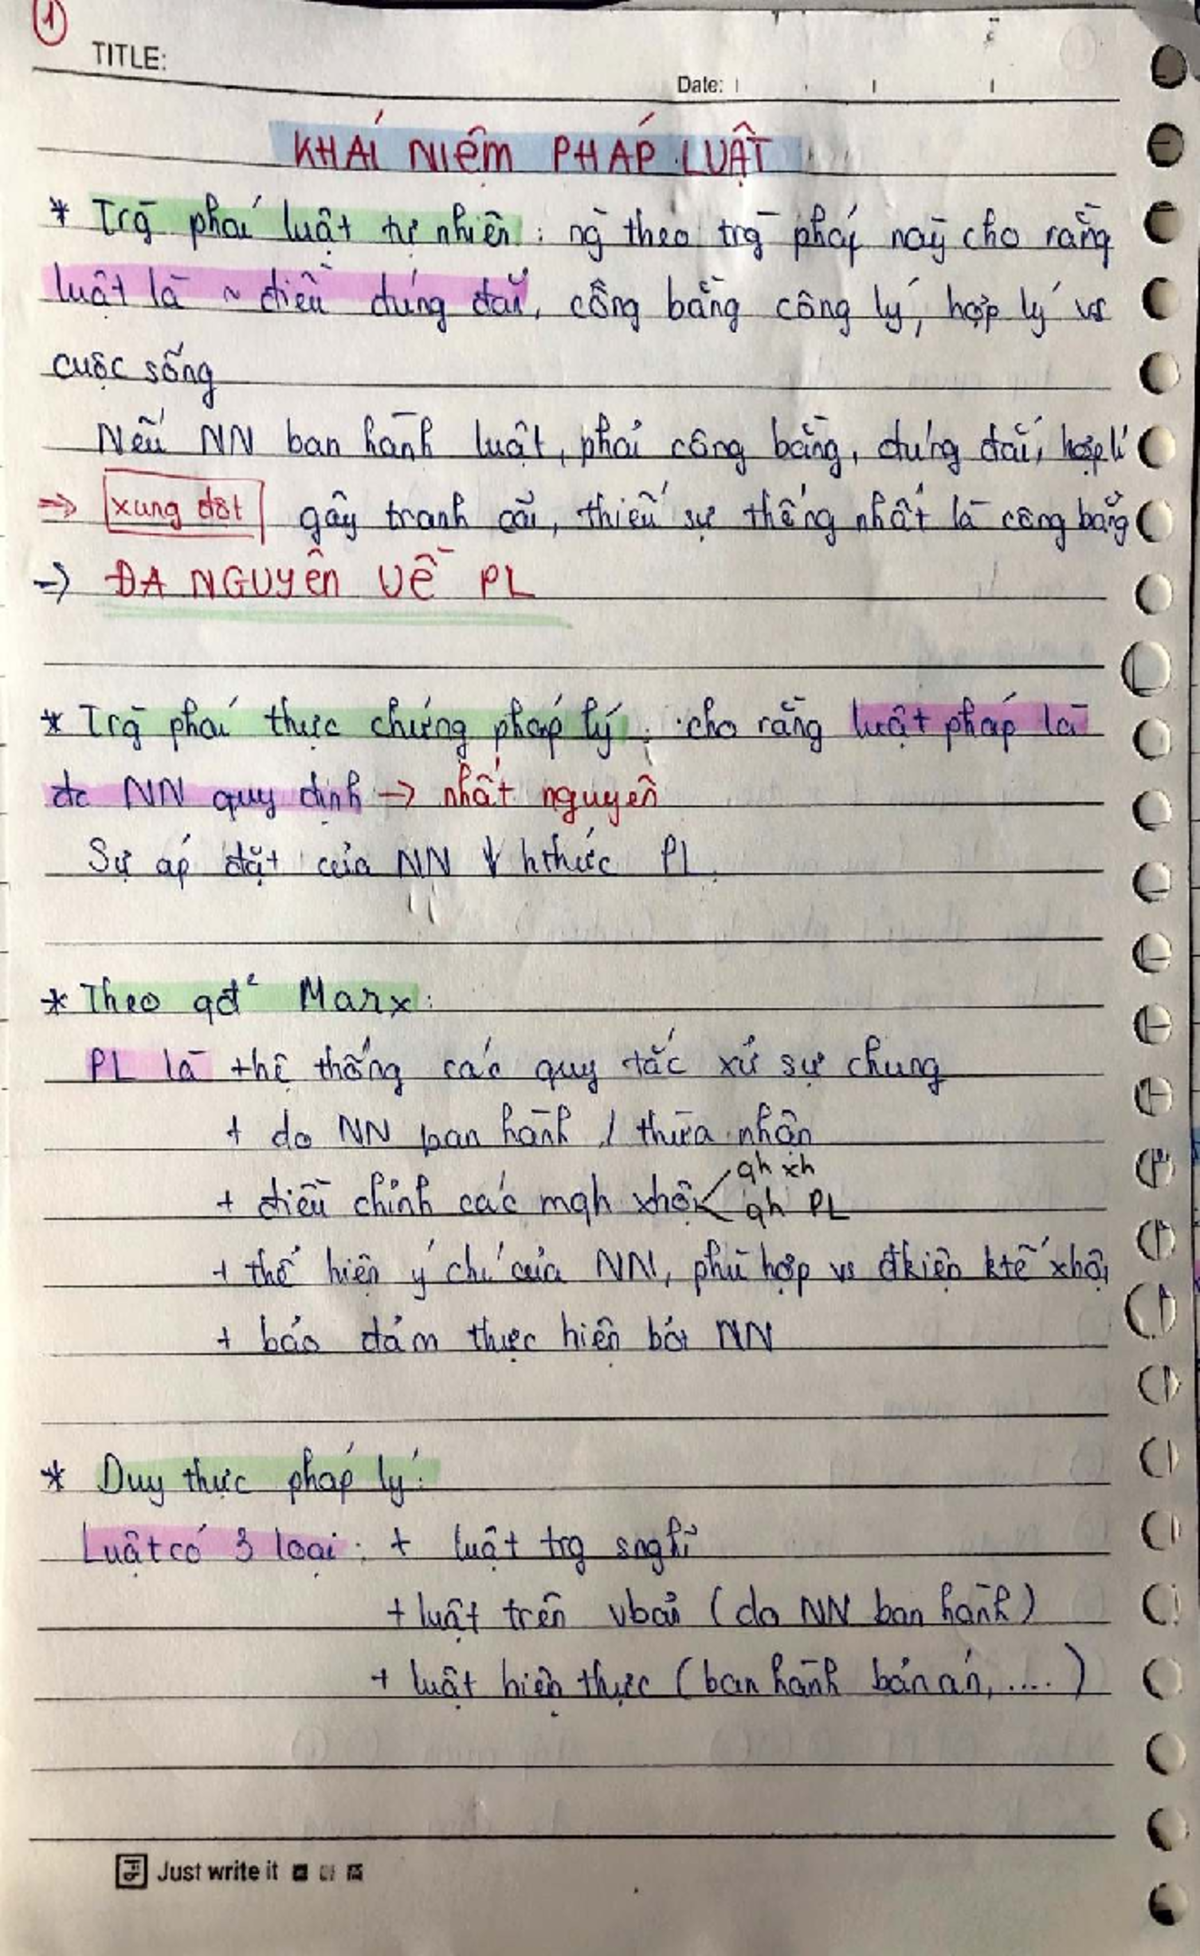 1
TITLE:
Date:
KHÁI NIỆM PHÁP LUẬT
* Trg phái luật tự nhiên : ng theo trg phái này cho rằng
luật là ~ điều đúng đắn, công bằng công lý, hợp lý vs
cuộc sống
Nếu NN ban hành luật, phải công bằng, đúng đắn, hợp lí
=> xung đột gây tranh cãi, thiếu sự thống nhất là công bằng
-> ĐA NGUYÊN VỀ PL
* Trg phái thực chứng pháp lý : cho rằng luật pháp là
do NN quy định -> nhất nguyên
Sự áp đặt của NN ↓ hthức PL.
* Theo qđ² Marx :
PL là + hệ thống các quy tắc xử sự chung
+ do NN ban hành / thừa nhận
+ điều chỉnh các mqh xhội < qh xh
qh PL
+ thể hiện ý chí của NN, phù hợp vs đkiện ktế xhội
+ bảo đảm thực hiện bởi NN
* Duy thực pháp lý :
Luật có 3 loại : + luật trg snghĩ
+ luật trên vbản (do NN ban hành)
+ luật hiện thực (ban hành bản án, ....)
Just write it